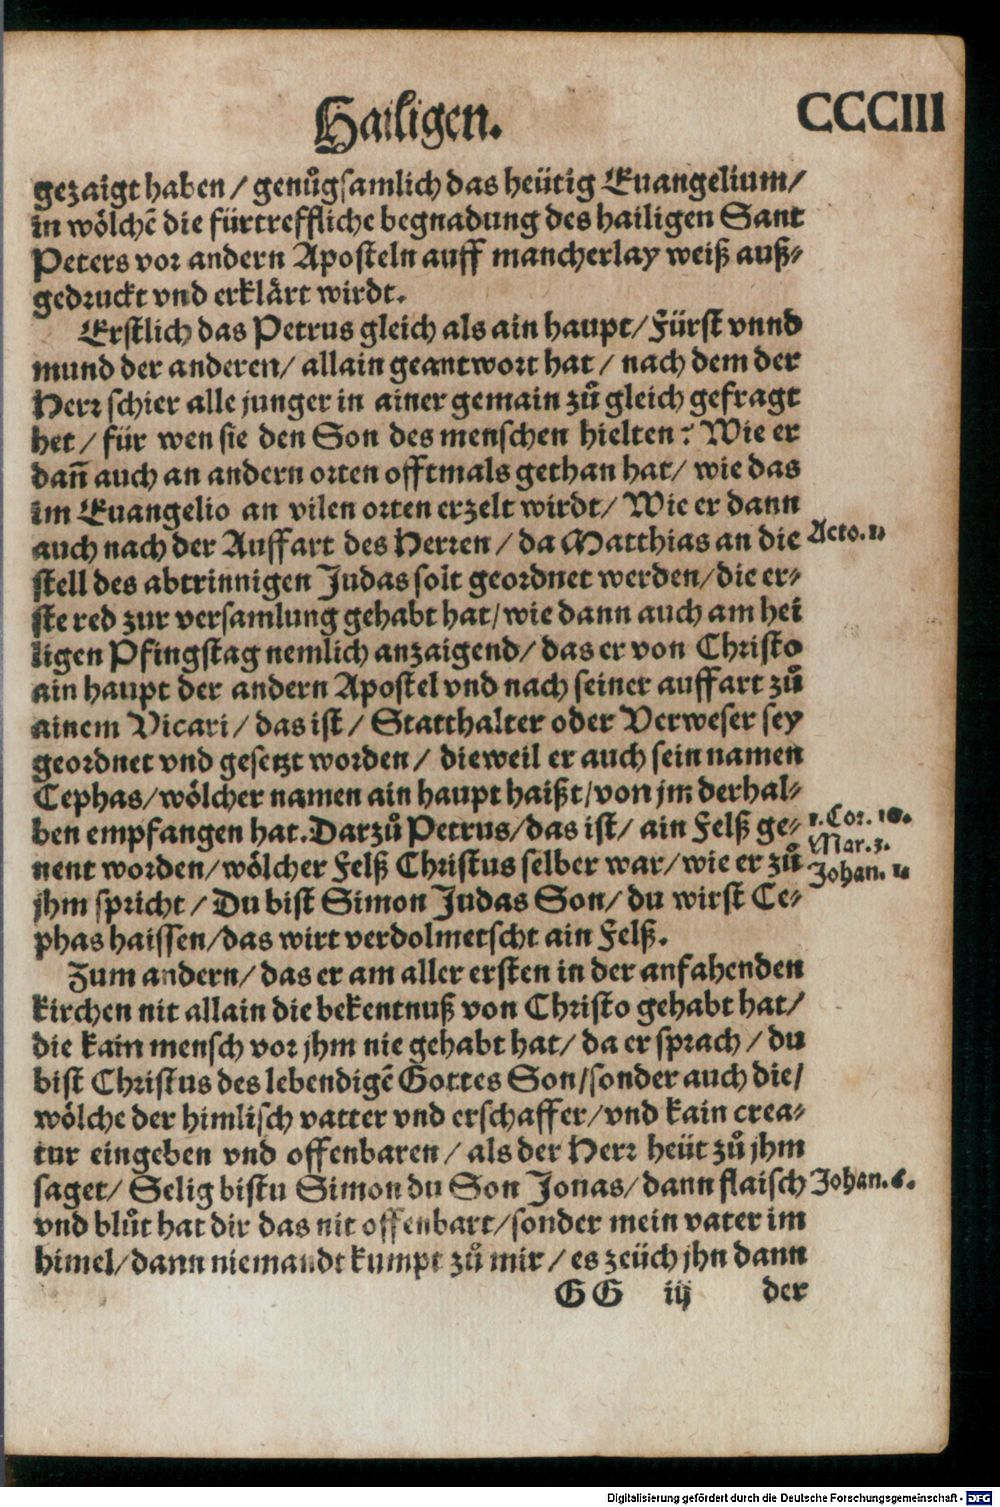 Hailigen.
CCCIII
gezaigt haben / genůgsamlich das heütig Euangelium/
in wölchē die fürtreffliche begnadung des hailigen Sant
Peters vor andern Aposteln auff mancherlay weiß auß⸗
gedruckt vnd erklärt wirdt.
Erstlich das Petrus gleich als ain haupt/Fürst vnnd
mund der anderen/ allain geantwort hat / nach dem der
Herr schier alle junger in ainer gemain zů gleich gefragt
het / für wen sie den Son des menschen hielten? Wie er
dañ auch an andern orten offtmals gethan hat/ wie das
im Euangelio an vilen orten erzelt wirdt/ Wie er dann
auch nach der Auffart des Herren / da Matthias an die
Acto. 1.
stell des abtrinnigen Judas solt geordnet werden/die er⸗
ste red zur versamlung gehabt hat/wie dann auch am hei
ligen Pfingstag nemlich anzaigend/ das er von Christo
ain haupt der andern Apostel vnd nach seiner auffart zů
ainem Vicari/ das ist/ Statthalter oder Verweser sey
geordnet vnd gesetzt worden / dieweil er auch sein namen
Cephas/wölcher namen ain haupt haißt/von jm derhal⸗
ben empfangen hat. Darzů Petrus/das ist/ ain Felß ge⸗
1. Cor. 10.
Mar. 3.
nent worden/wölcher Felß Christus selber war/wie er zů
Johan. 1.
jhm spricht / Du bist Simon Judas Son/ du wirst Ce⸗
phas haissen/das wirt verdolmetscht ain Felß.
Zum andern/ das er am aller ersten in der anfahenden
kirchen nit allain die bekentnuß von Christo gehabt hat/
die kain mensch vor jhm nie gehabt hat/ da er sprach / du
bist Christus des lebendigē Gottes Son/sonder auch die/
wölche der himlisch vatter vnd erschaffer/vnd kain crea⸗
tur eingeben vnd offenbaren / als der Herr heüt zů jhm
saget/ Selig bistu Simon du Son Jonas/dann flaisch
Johan. 6.
vnd blůt hat dir das nit offenbart/sonder mein vater im
himel/dann niemandt kumpt zů mir / es zeüch jhn dann
GG iij der
Digitalisierung gefördert durch die Deutsche Forschungsgemeinschaft - DFG